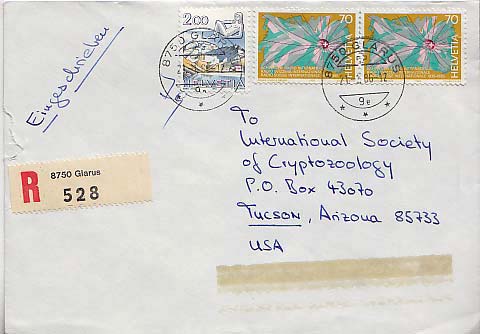 Eingeschrieben
2.00
HELVETIA
70
HELVETIA
70
HELVETIA
8750 GLARUS
8750 GLARUS
9e
R
8750 Glarus
528
To
International Society
of Cryptozoology
P.O. Box 43070
Tucson, Arizona 85733
USA